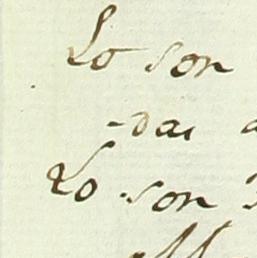 Lo son
-dai a
Lo son